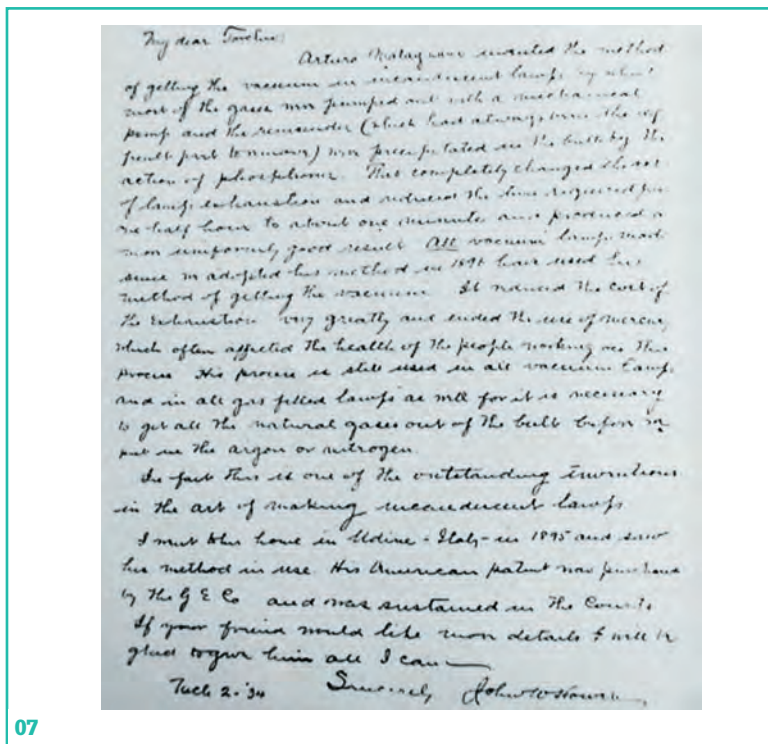 My dear
Arturo Malignani invented the method
of getting the vacuum in incandescent lamps by which
most of the gases was pumped out with a mechanical
pump and the remainder (which had always been the dif
ficult part to remove) was precipitated in the bulb by the
action of phosphorus. This completely changed the art
of lamp exhaustion and reduced the time required from
one half hour to about one minute and produced a
more uniformly good result. All vacuum lamps made
since we adopted his method in 1896 have used his
method of getting the vacuum. It reduced the cost of
the exhaustion very greatly and ended the use of mercury
which often affected the health of the people working on the
process. His process is still used in all vacuum lamps
and in all gas filled lamps as well for it is necessary
to get all the natural gases out of the bulb before we
put in the argon or nitrogen.
In fact this is one of the outstanding inventions
in the art of making incandescent lamps.
I went to his home in Udine - Italy - in 1895 and saw
his method in use. His American patent was purchased
by the G E Co and was sustained in the Courts.
If your friend would like more details I will be
glad to give him all I can
2-'34 Sincerely John W Howell
07